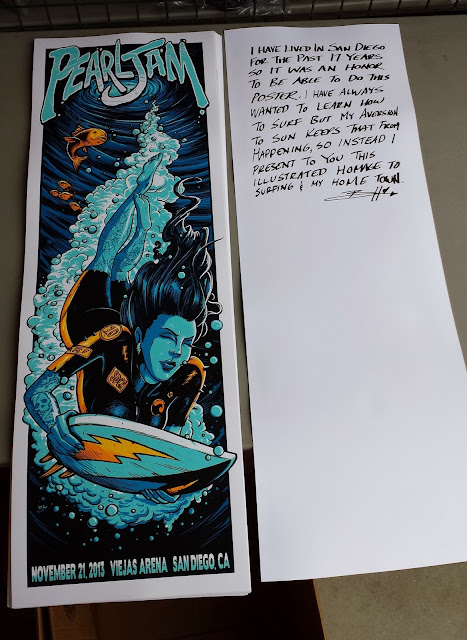 PEARL JAM
NOVEMBER 21, 2013 VIEJAS ARENA SAN DIEGO, CA
I HAVE LIVED IN SAN DIEGO
FOR THE PAST 17 YEARS
SO IT WAS AN HONOR
TO BE ABLE TO DO THIS
POSTER. I HAVE ALWAYS
WANTED TO LEARN HOW
TO SURF BUT MY AVERSION
TO SUN KEEPS THAT FROM
HAPPENING, SO INSTEAD I
PRESENT TO YOU THIS
ILLUSTRATED HOMAGE TO
SURFING & MY HOME TOWN.